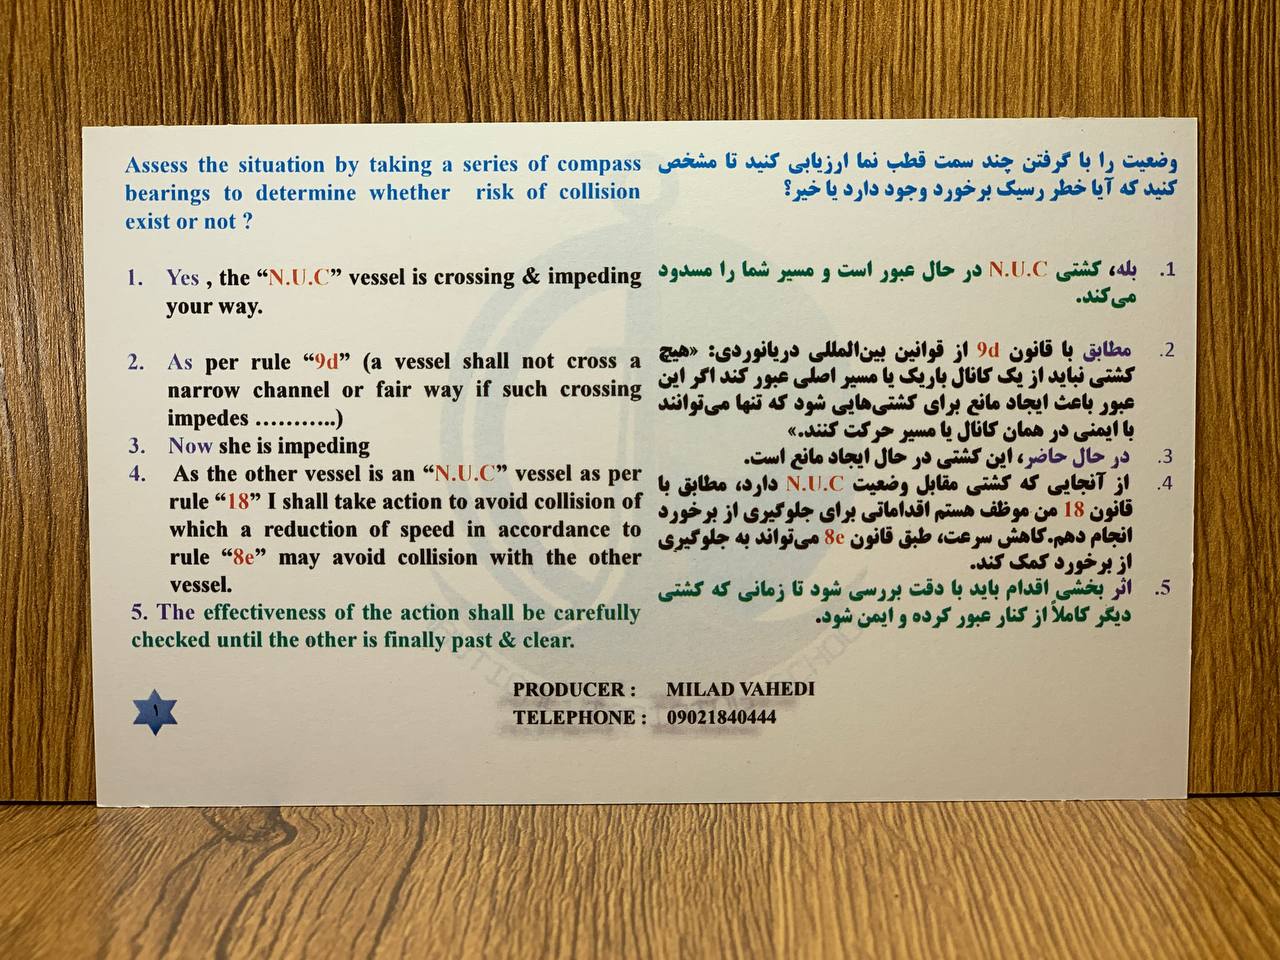 Assess the situation by taking a series of compass
bearings to determine whether risk of collision
exist or not ?
1. Yes , the “N.U.C” vessel is crossing & impeding
your way.
2. As per rule “9d” (a vessel shall not cross a
narrow channel or fair way if such crossing
impedes ………..)
3. Now she is impeding
4. As the other vessel is an “N.U.C” vessel as per
rule “18” I shall take action to avoid collision of
which a reduction of speed in accordance to
rule “8e” may avoid collision with the other
vessel.
5. The effectiveness of the action shall be carefully
checked until the other is finally past & clear.
وضعیت را با گرفتن چند سمت قطب نما ارزیابی کنید تا مشخص
کنید که آیا خطر رسیک برخورد وجود دارد یا خیر؟
1. بله، کشتی N.U.C در حال عبور است و مسیر شما را مسدود
می‌کند.
2. مطابق با قانون 9d از قوانین بین‌المللی دریانوردی: «هیچ
کشتی نباید از یک کانال باریک یا مسیر اصلی عبور کند اگر این
عبور باعث ایجاد مانع برای کشتی‌هایی شود که تنها می‌توانند
با ایمنی در همان کانال یا مسیر حرکت کنند.»
3. در حال حاضر، این کشتی در حال ایجاد مانع است.
4. از آنجایی که کشتی مقابل وضعیت N.U.C دارد، مطابق با
قانون 18 من موظف هستم اقداماتی برای جلوگیری از برخورد
انجام دهم.کاهش سرعت، طبق قانون 8e می‌تواند به جلوگیری
از برخورد کمک کند.
5. اثر بخشی اقدام باید با دقت بررسی شود تا زمانی که کشتی
دیگر کاملاً از کنار عبور کرده و ایمن شود.
PRODUCER : MILAD VAHEDI
TELEPHONE : 09021840444
۱